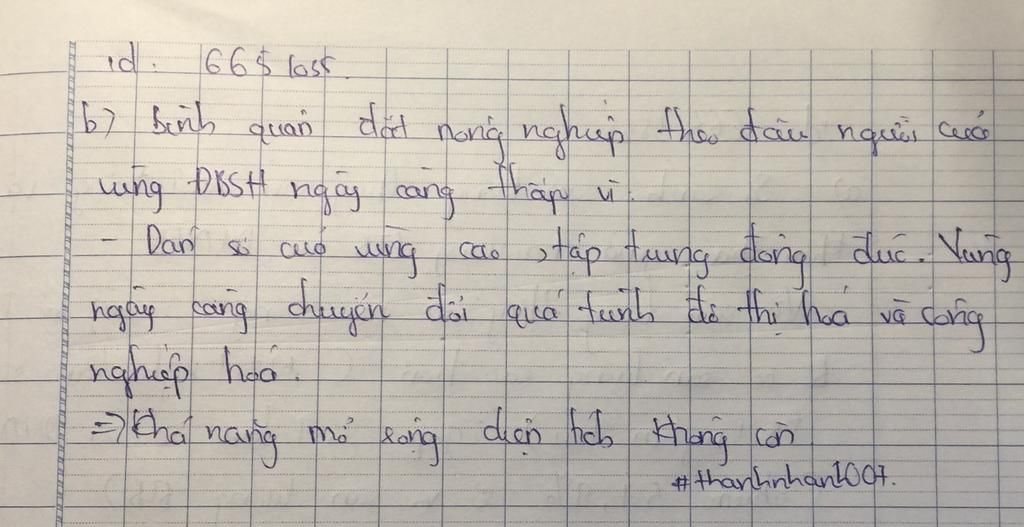 id. 66$ lost.
b) Bình quân đất nông nghiệp theo đầu người của
vùng ĐBSH ngày càng thấp vì:
- Dân số của vùng cao, tập trung đông đúc. Vùng
ngày càng chuyển đổi quá trình đô thị hoá và công
nghiệp hoá.
=> Khả năng mở rộng diện tích không còn
#thanhnhan1007.